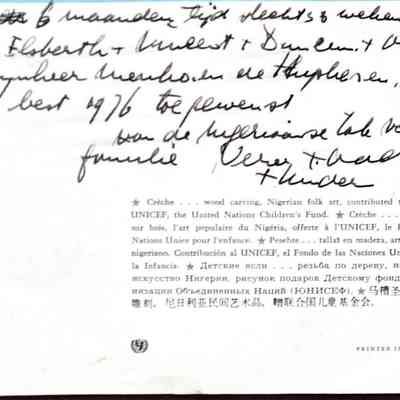 6 maanden tijd slechts 3 weken
Elsbeth + Vincent + Duncan +
de
best 1976 toegewenst
van de Nigeriaanse tak
familie
+ kinder
★ Crèche . . . wood carving, Nigerian folk art, contributed t
UNICEF, the United Nations Children's Fund. ★ Crèche . . .
sur bois, l'art populaire du Nigéria, offerte à l'UNICEF, le F
Nations Unies pour l'enfance. ★ Pesebre . . . tallat en madera, art
nigeriano. Contribución al UNICEF, el Fondo de las Naciones Un
la Infancia. ★ Детские ясли . . . резьба по дереву, н
искусство Нигерии, рисунок подарок Детскому фонд
низации Объединенных Наций (ЮНИСЕФ). ★ 马槽圣
雕刻, 尼日利亚民间艺术品, 赠联合国儿童基金会.
PRINTED I